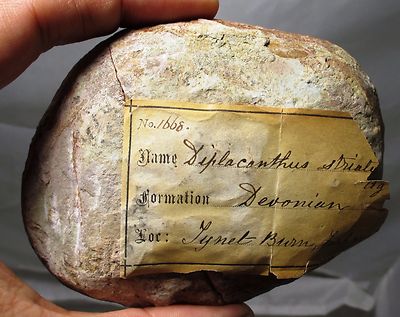 No. 1668.
Name Diplacanthus striatu
Formation Devonian
Loc: Tynet Burn,